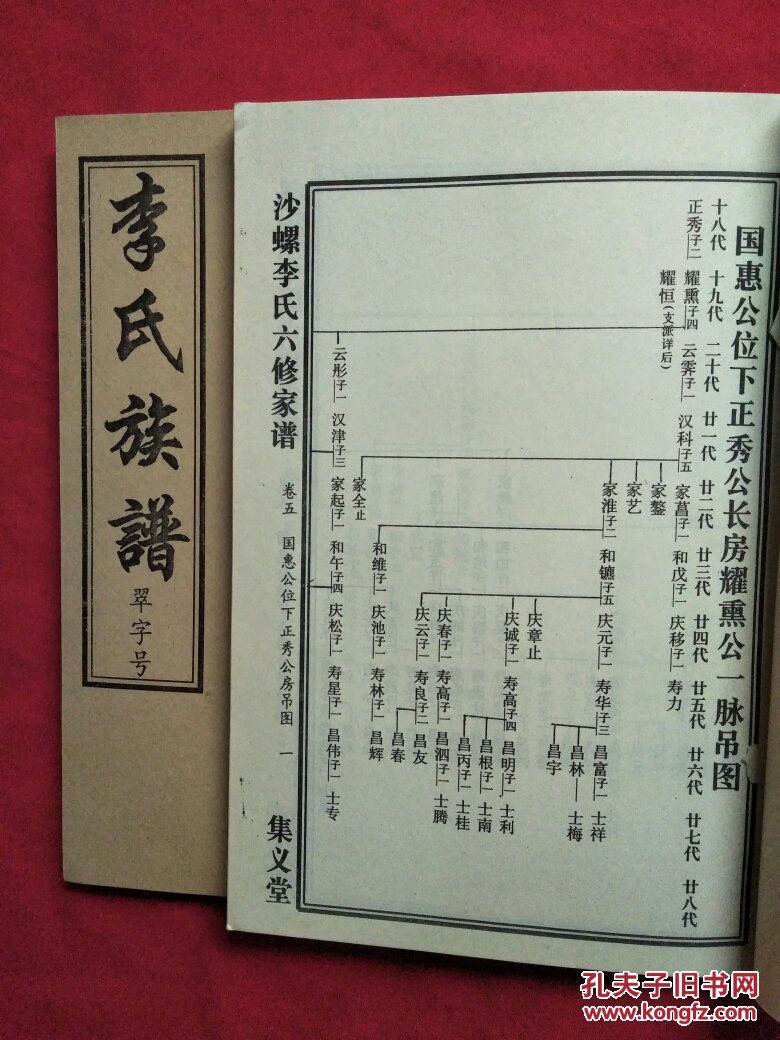 国惠公位下正秀公长房耀熏公一脉吊图
十八代 十九代 二十代 廿一代 廿二代 廿三代 廿四代 廿五代 廿六代 廿七代 廿八代
正秀子二 耀熏子四 云霁子一 汉科子五 家菖子一 和戊子一 庆移子一 寿力
耀恒(支派详后)
家鏊
家艺
家淮子二 和镳子五 庆元子一 寿华子三 昌富子一 士祥
昌林 士梅
昌宇
庆章止
庆诚子一 寿高子四 昌明子一 士利
昌根子一 士南
昌丙子一 士桂
庆春子一 寿高子一 昌泗子一 士腾
庆云子一 寿良子二 昌友
昌春
和维子一 庆池子一 寿林子一 昌辉
家全止
云彤子一 汉津子三 家起子一 和午子四 庆松子一 寿星子一 昌伟子一 士专
沙螺李氏六修家谱
卷五 国惠公位下正秀公房吊图 一
集义堂
李氏族譜
翠字号
孔夫子旧书网
www.kongfz.com